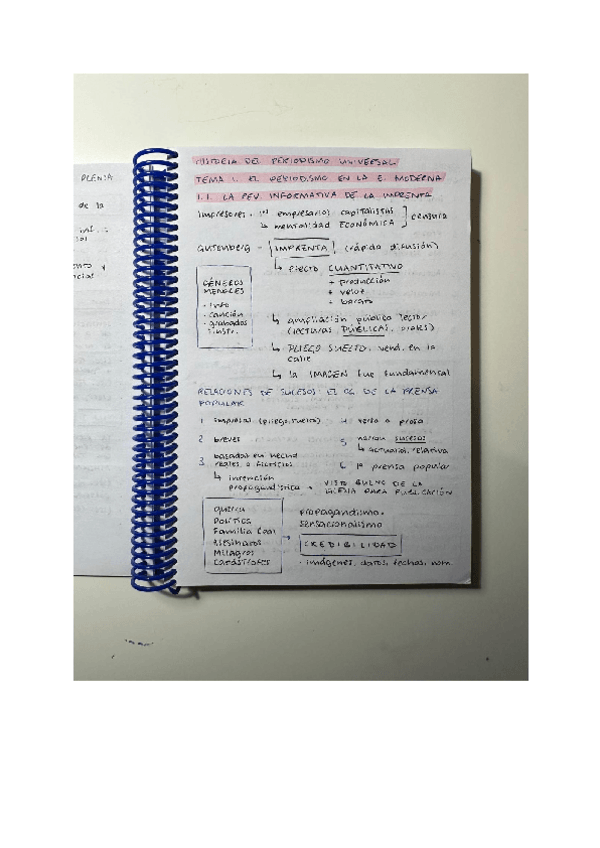 PLENA
de la
HISTORIA DEL PERIODISMO UNIVERSAL
TEMA 1. EL PERIODISMO EN LA E. MODERNA
1.1. LA REV. INFORMATIVA DE LA IMPRENTA
Impresores. empresarios capitalistas
↳ mentalidad ECONÓMICA
censura
Gutenberg - IMPRENTA (rápida difusión)
↳ efecto CUANTITATIVO
+ producción
+ veloz
+ barato
GÉNEROS
MENORES
- info
- canción
- grabados
↳ ampliación público lector
(lecturas PÚBLICAS, orales)
↳ PLIEGO SUELTO. vend. en la
calle
↳ la IMAGEN fue fundamental
RELACIONES DE SUCESOS: EL OG DE LA PRENSA
POPULAR
1 impresas (pliego suelto)
2 breves
3 basadas en hechos
reales o ficticios
↳ intención
propagandística
4 verso o prosa
5 narran sucesos
↳ actualidad relativa
6 1ª prensa popular
VISTO BUENO DE LA
IGLESIA PARA PUBLICACIÓN
Guerra
Política
Familia Real
Asesinatos
Milagros
Catástrofes
propagandismo.
sensacionalismo
CREDIBILIDAD
· imágenes, datos, fechas, nom.